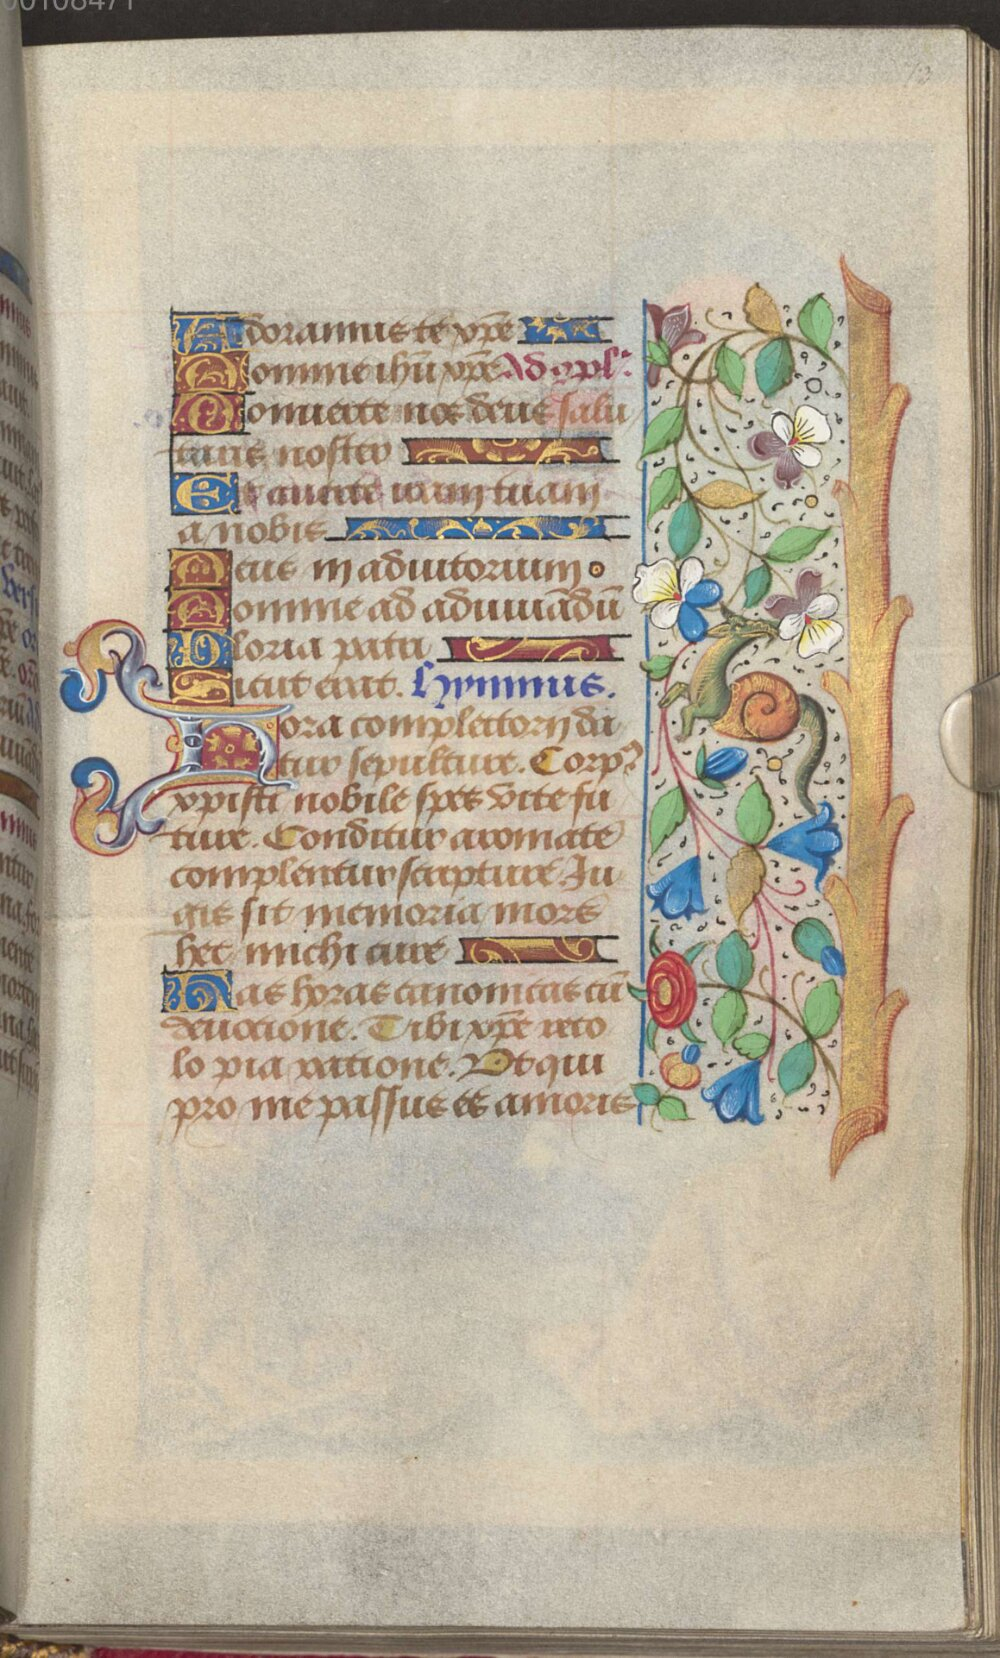 00108471
73
Adoramus te xp̄e
Domine ihū xp̄e Ad ꝯpl᷑:
Conuerte nos deus salu
taris noster
Et auerte iram tuam
a nobis
Deus in adiutorium
Domine ad adiuuādū
Gloria patri
Sicut erat. Hymnus.
Hora completorij da
tur sepulture. Corpꝰ
xpisti nobile spes vite fu
ture. Conditur aromate
complentur scripture Iu
gis sit memoria mors
hec michi cure
Has horas canonicas cū
deuocione. Tibi xp̄e reco
lo pia racione. Vt qui
pro me passus es amoris